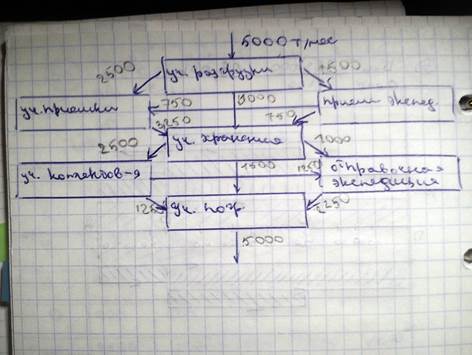 5000 т/мес
2500
1500
уч. разгрузки
уч. приемки
750
1000
прием. экспед.
3250
750
уч. хранения
2500
1000
уч. комплектов-я
1500
1250
отправочная
экспедиция
1250
уч. погр.
2250
5000